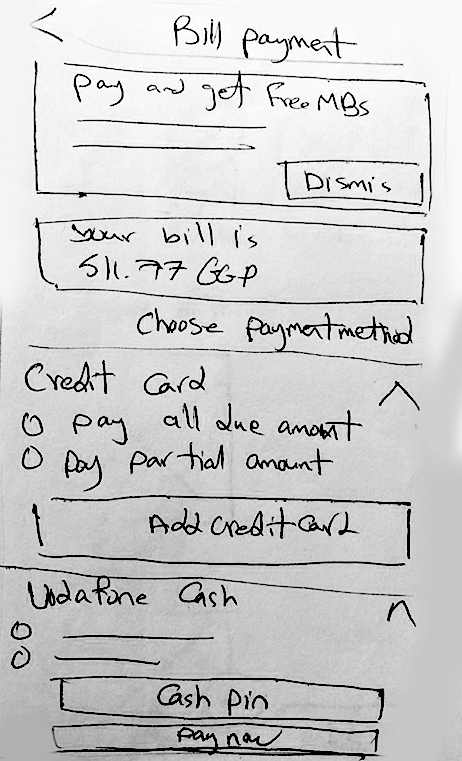 Bill payment
pay and get Free MBs
Dismis
your bill is
511.77 GGP
Choose payment method
Credit Card
pay all due amount
pay partial amount
Add credit card
Vodafone Cash
Cash pin
pay now